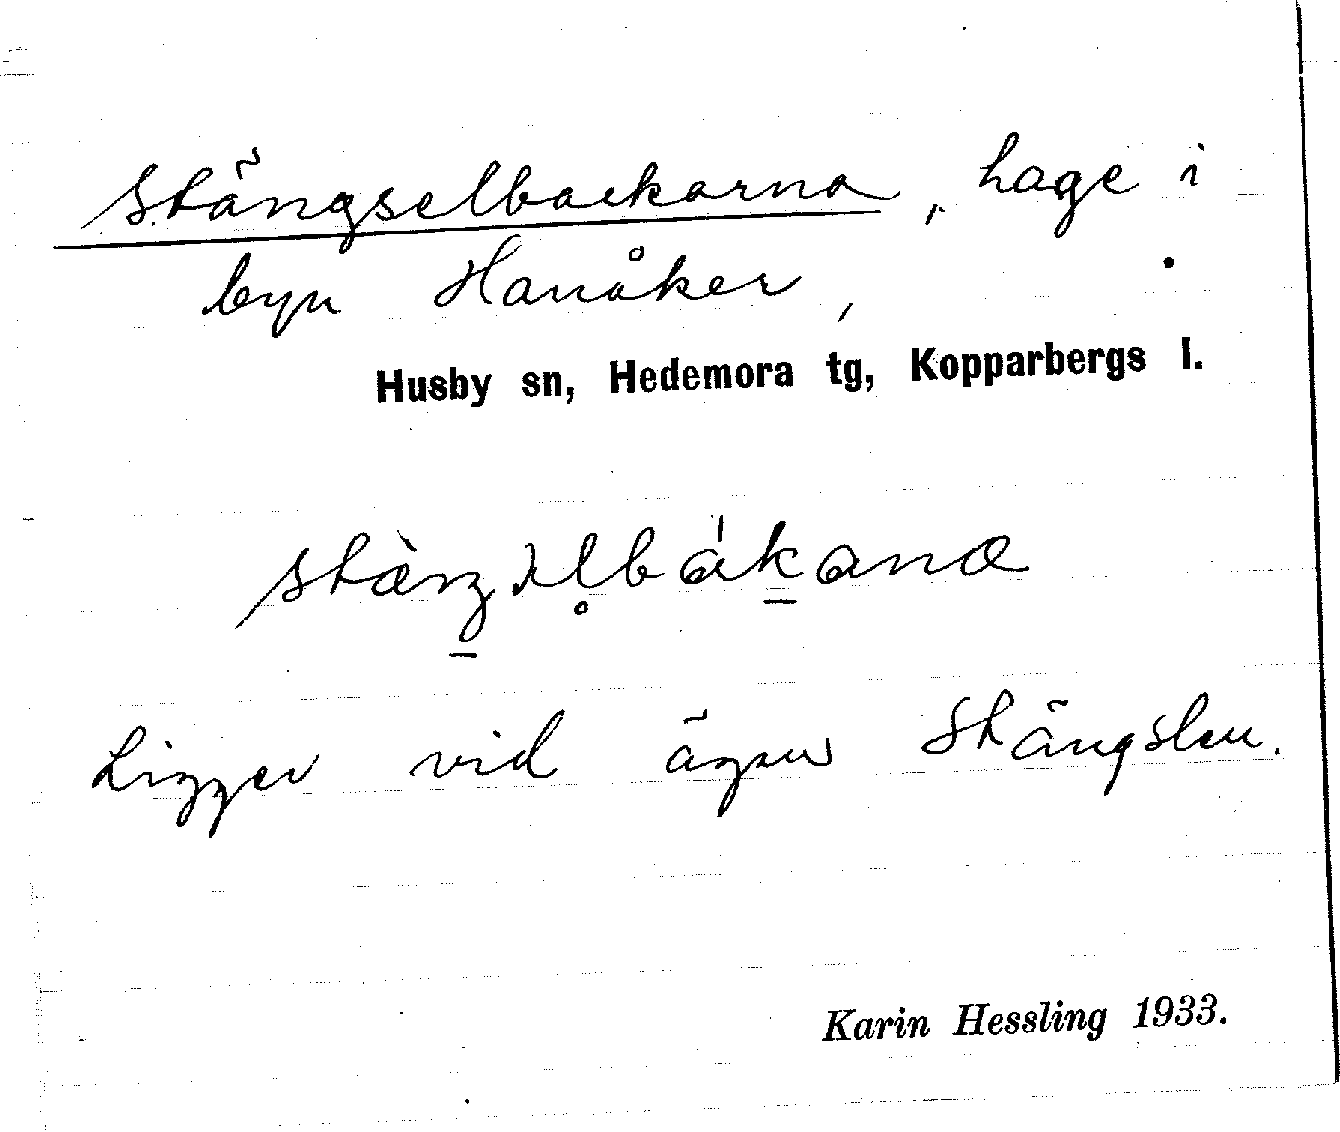 Stängselbackarna, hage i
byn Hanåker,
Husby sn, Hedemora tg, Kopparbergs l.
Ligger vid ägan Stängslen.
Karin Hessling 1933.